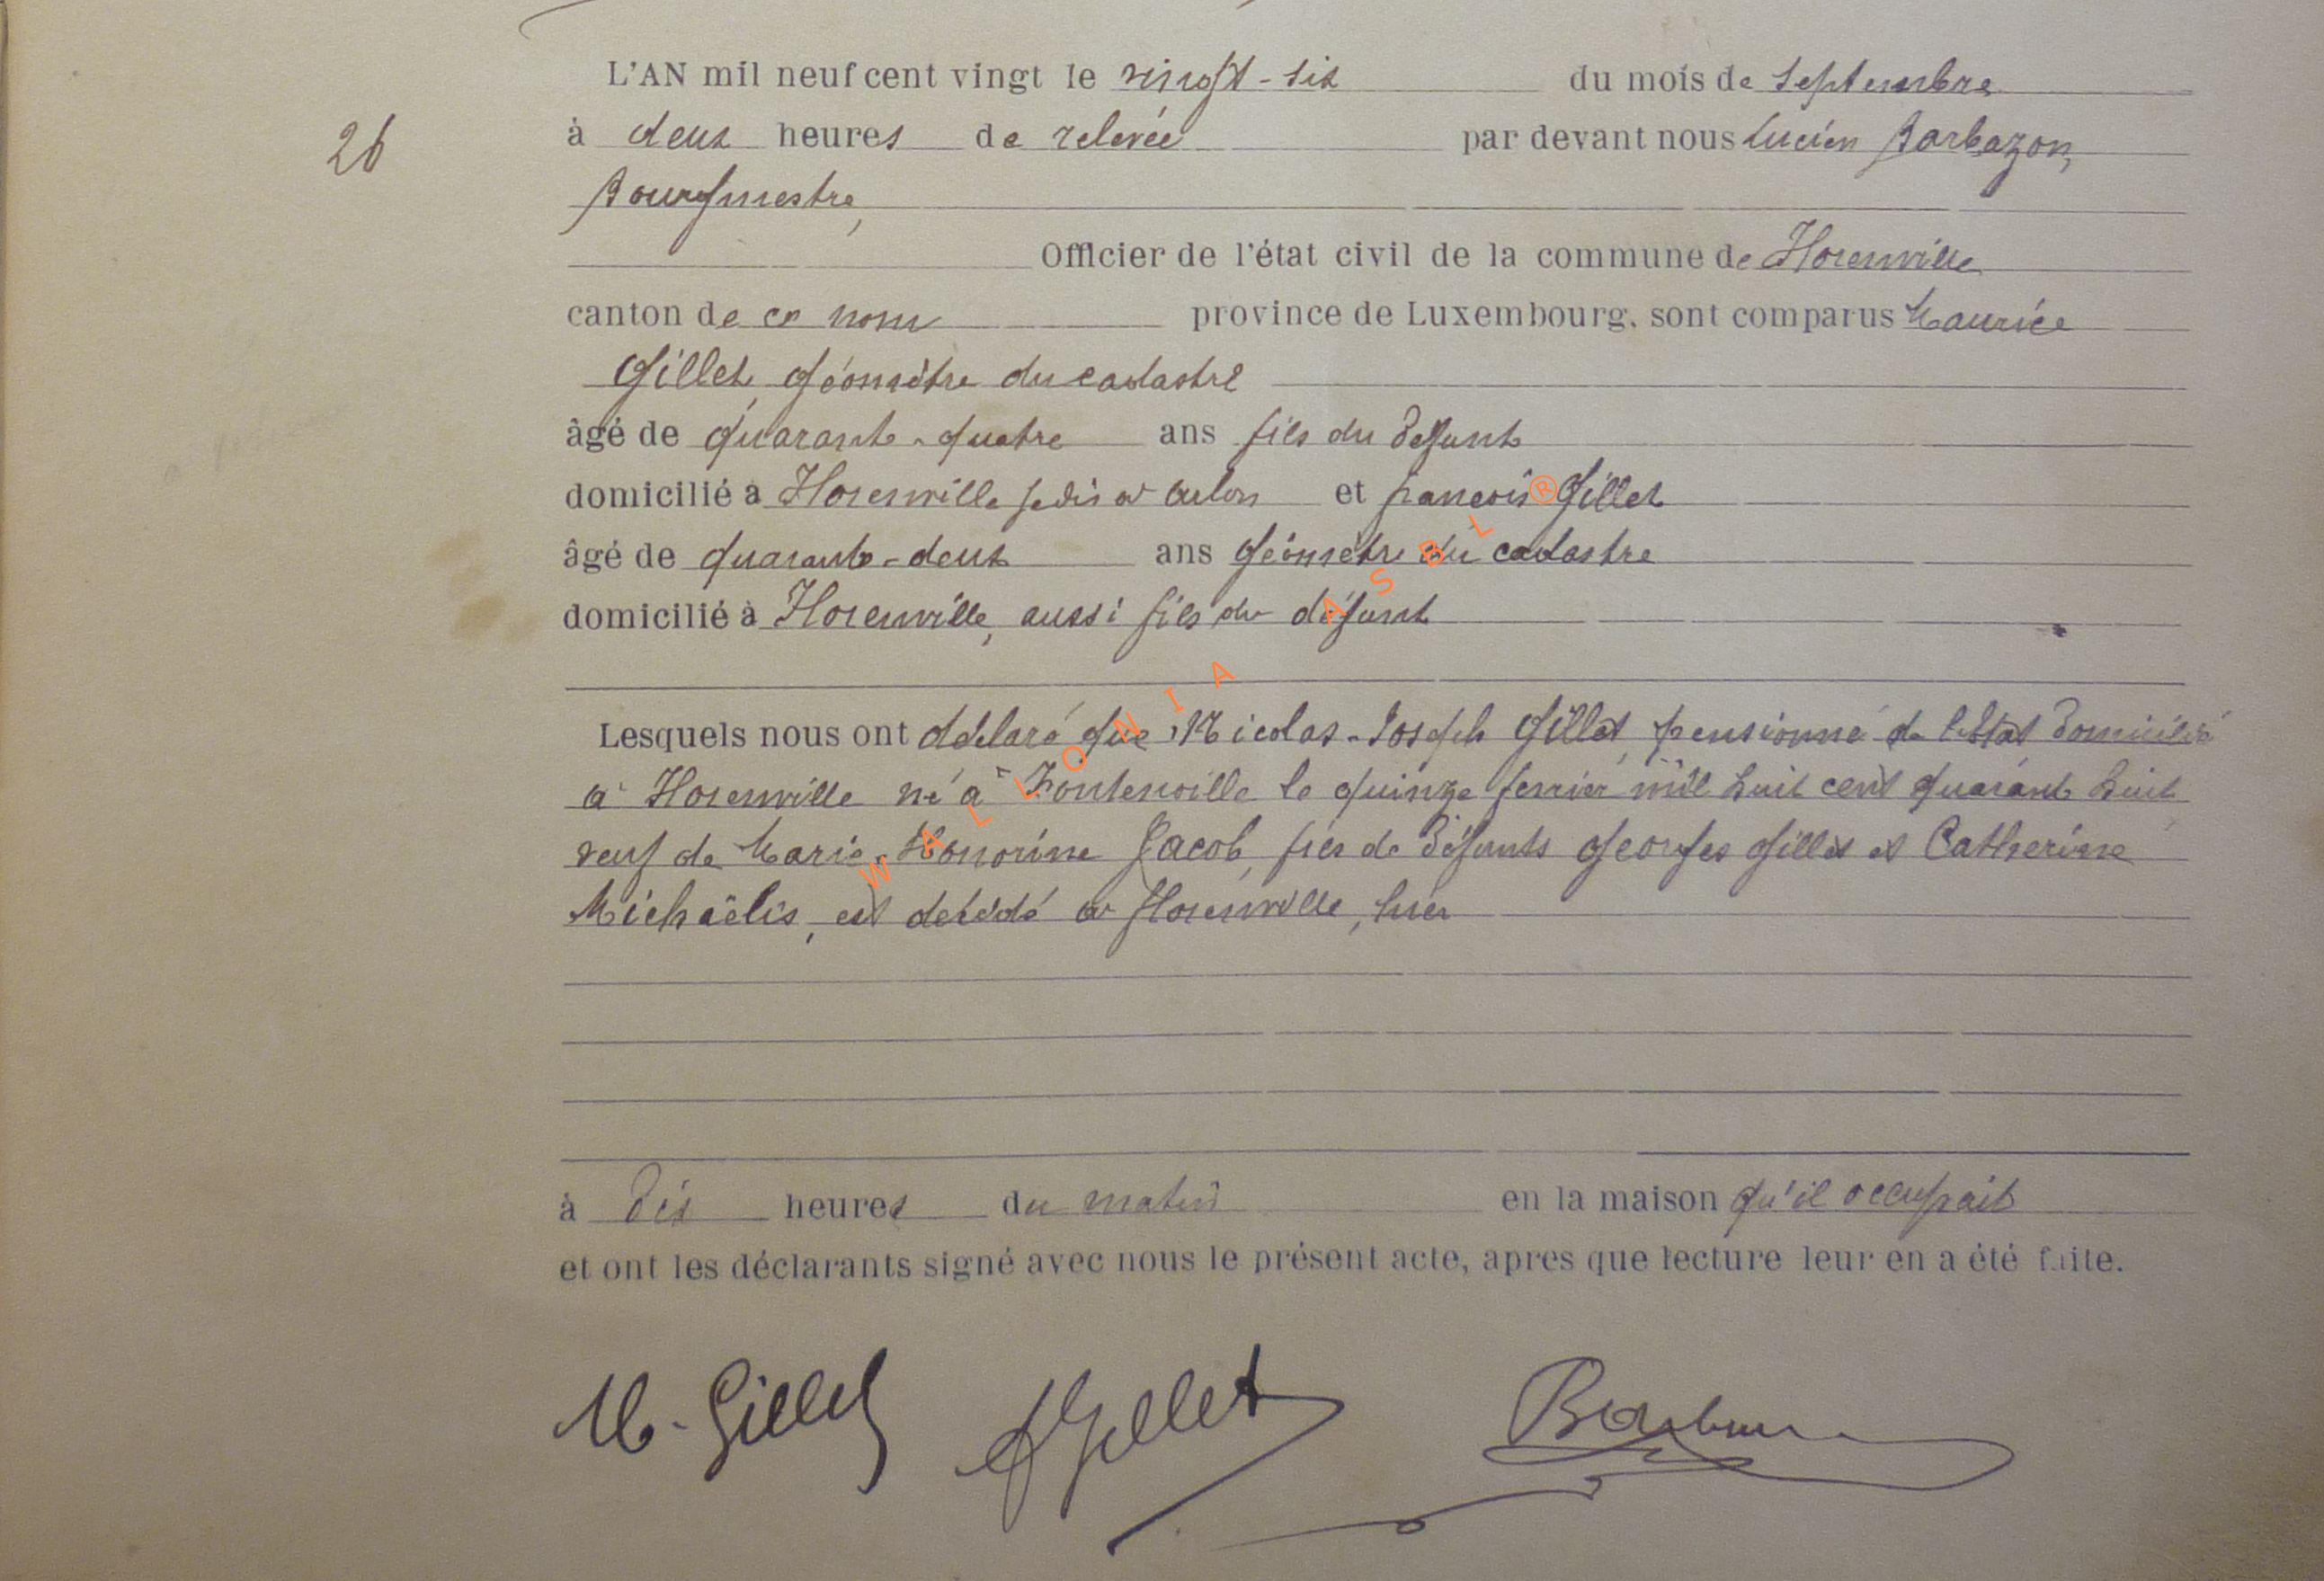 L'AN mil neuf cent vingt le vingt-six du mois de septembre
26
à deux heures de relevée par devant nous Lucien Barbazon,
Bourgmestre,
Officier de l'état civil de la commune de Florenville
canton de ce nom province de Luxembourg, sont comparus Maurice
Gillet, géomètre du cadastre
âgé de quarante-quatre ans fils du défunt
domicilié à Florenville jadis à Arlon et François Gillet
âgé de quarante-deux ans géomètre du cadastre
domicilié à Florenville, aussi fils du défunt
Lesquels nous ont déclaré que Nicolas-Joseph Gillet, pensionné de l'Etat domicilié
à Florenville né à Fontenoille le quinze février mil huit cent quarante huit,
veuf de Marie-Honorine Jacob, fils de défunts Georges Gillet et Catherine
Michaëlis, est décédé à Florenville, hier
à dix heures du matin en la maison qu'il occupait
et ont les déclarants signé avec nous le présent acte, apres que lecture leur en a été faite.
M. Gillet FGillet
WALLONIA ASBL ®